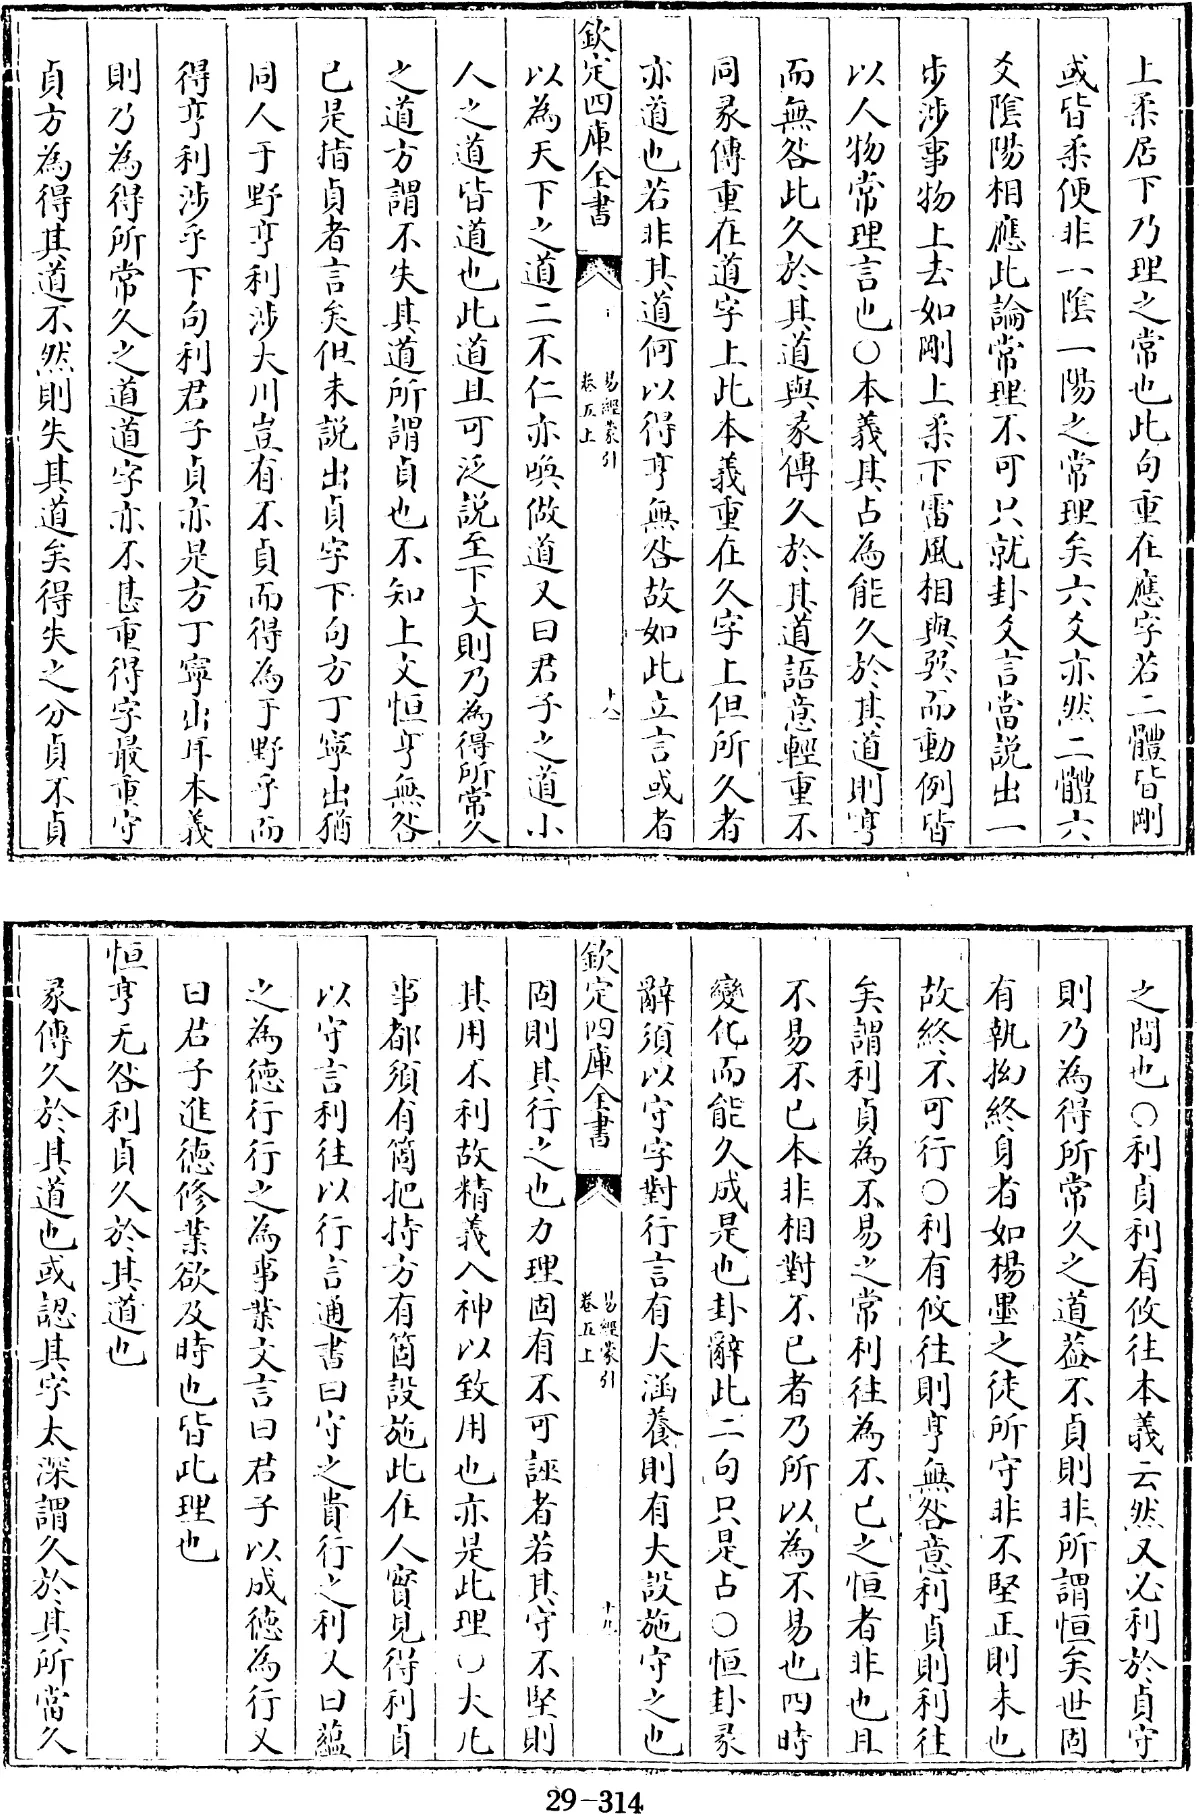 上柔居下乃理之常也此句重在應字若二體皆剛
或皆柔便非一陰一陽之常理矣六爻亦然二體六
爻陰陽相應此論常理不可只就卦爻言當説出一
步涉事物上去如剛上柔下雷風相與巽而動例皆
以人物常理言也○本義其占為能久於其道則亨
而無咎此久於其道與彖傳久於其道語意輕重不
同彖傳重在道字上此本義重在久字上但所久者
亦道也若非其道何以得亨無咎故如此立言或者
欽定四庫全書
易經蒙引
卷五上
十八
以為天下之道二不仁亦喚做道又曰君子之道小
人之道皆道也此道且可泛説至下文則乃為得所常久
之道方謂不失其道所謂貞也不知上文恒亨無咎
已是指貞者言矣但未説出貞字下句方丁寧出猶
同人于野亨利涉大川豈有不貞而得為于野乎而
得亨利涉乎下句利君子貞亦是方丁寧出耳本義
則乃為得所常久之道道字亦不甚重得字最重守
貞方為得其道不然則失其道矣得失之分貞不貞
之間也○利貞利有攸往本義云然又必利於貞守
則乃為得所常久之道蓋不貞則非所謂恒矣世固
有執拗終身者如楊墨之徒所守非不堅正則未也
故終不可行○利有攸往則亨無咎意利貞則利往
矣謂利貞為不易之常利往為不已之恒者非也且
不易不已本非相對不已者乃所以為不易也四時
變化而能久成是也卦辭此二句只是占○恒卦彖
辭須以守字對行言有大涵養則有大設施守之也
欽定四庫全書
易經蒙引
卷五上
十九
固則其行之也力理固有不可誣者若其守不堅則
其用不利故精義入神以致用也亦是此理○大凡
事都須有箇把持方有箇設施此在人實見得利貞
以守言利往以行言通書曰守之貴行之利又曰蘊
之為德行行之為事業文言曰君子以成德為行又
曰君子進德修業欲及時也皆此理也
恒亨无咎利貞久於其道也
彖傳久於其道也或認其字太深謂久於其所當久
29-314